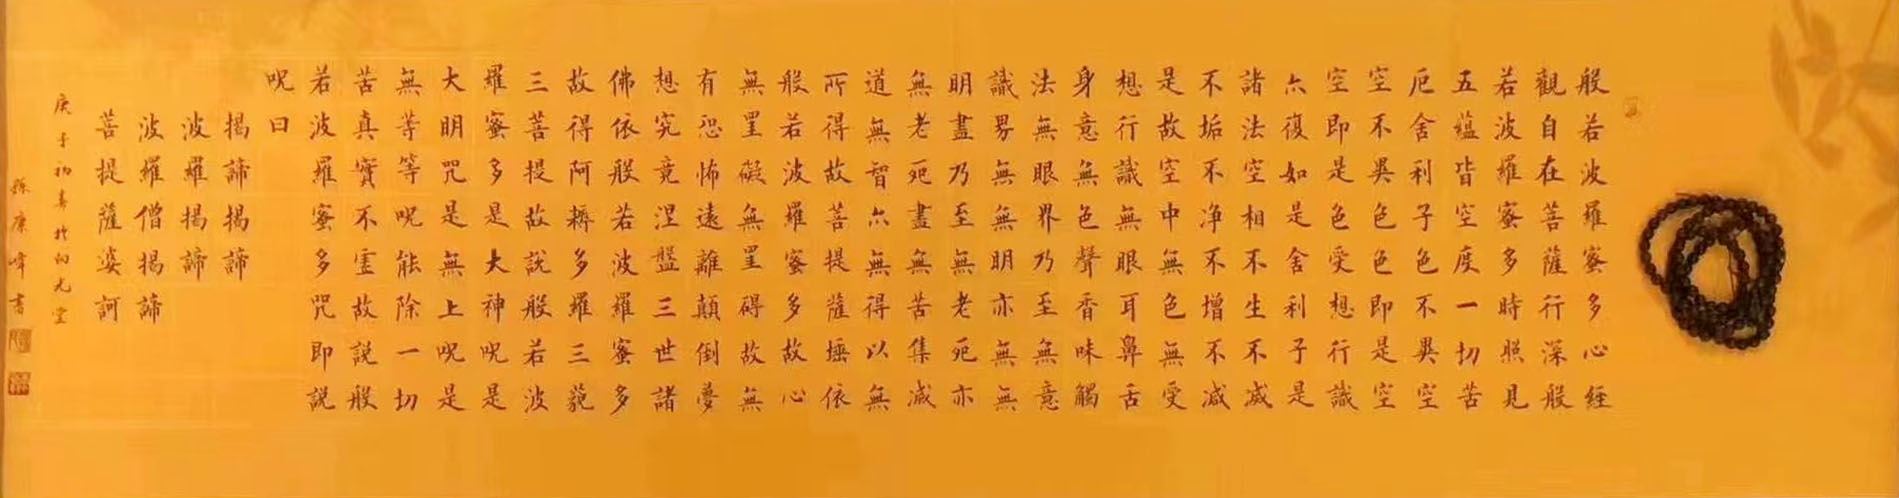 般若波羅蜜多心經
觀自在菩薩行深般
若波羅蜜多時照見
五蘊皆空度一切苦
厄舍利子色不異空
空不異色色即是空
空即是色受想行識
亦復如是舍利子是
諸法空相不生不滅
不垢不净不增不減
是故空中無色無受
想行識無眼耳鼻舌
身意無色聲香味觸
法無眼界乃至無意
識界無無明亦無無
明盡乃至無老死亦
無老死盡無苦集滅
道無智亦無得以無
所得故菩提薩埵依
般若波羅蜜多故心
無罣礙無罣碍故無
有恐怖遠離顛倒夢
想究竟涅盤三世諸
佛依般若波羅蜜多
故得阿耨多羅三藐
三菩提故説般若波
羅蜜多是大神呪是
大明咒是無上呪是
無等等呪能除一切
苦真實不虛故説般
若波羅蜜多咒即説
呪曰
揭諦揭諦
波羅揭諦
波羅僧揭諦
菩提薩婆訶
庚子初春於堂
康峰書